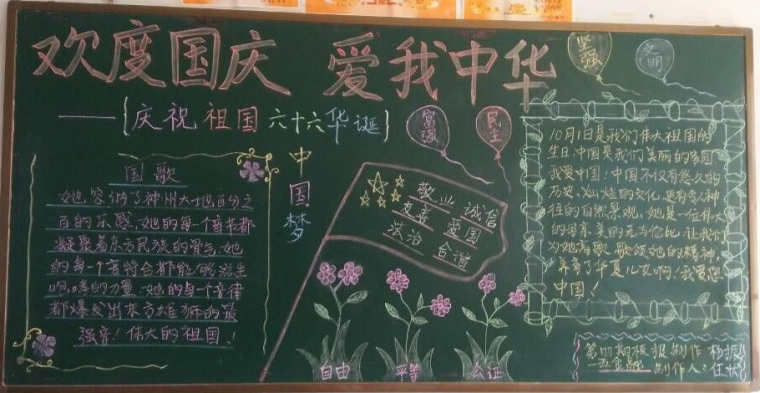 欢度国庆 爱我中华
——{庆祝祖国六十六华诞}
坚强
文明
富强
民主
中国梦
国歌
她容纳了神州大地百分之
百的乐感,她的每一个音节都
凝聚着东方民族的骨气,她
的每一个音符台都能够滋生
的力量,她的每一个音律
都爆发出东方雄狮的最
强音!伟大的祖国!
敬业 诚信
友善 爱国
法治 合谐
自由
平等
公证
10月1日是我们伟大祖国的
生日,中国是我们美丽的家园
我爱中国:中国不仅有悠久的
历史,灿烂的文化,更有令人神
往的自然景观,她是一位伟大
的母亲,美的无与伦比,让我们
为她高歌,歌颂她的精神,
养育了华夏儿女啊,我爱您
中国!
期板报制作
制作人: